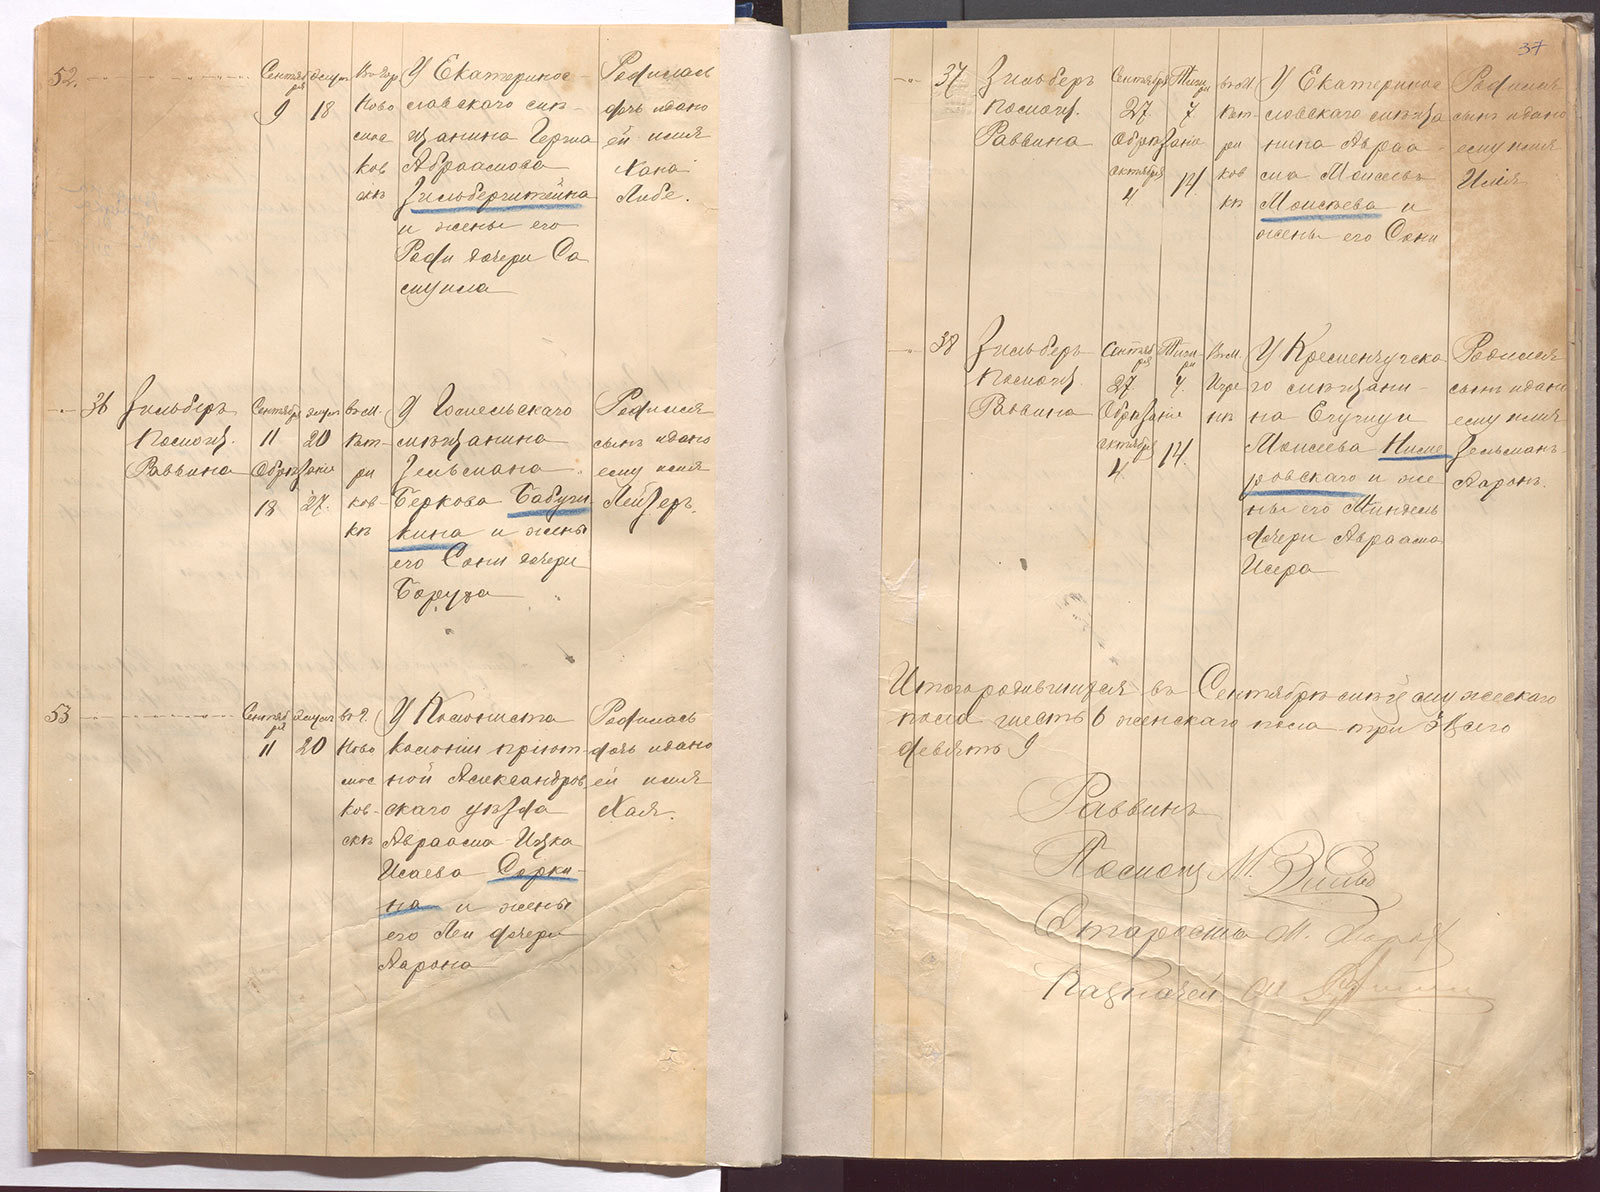 52.
Сентяб
ря
9
Элулъ
18
Въ гор
Ново
мос
ков
скѣ
У Екатеринос
славскаго мѣ-
щанина Герша
Абраамова
Зильберштейна
и жены его
Роди дочери Са
муила
Родилась
дочь и дано
ей имя
Хана
Либе.
36
Зильберъ
Помощ.
Раввина
Сентября
11
Обрѣзанiе
18
Элулъ
20
27.
въ М.
Пет-
ри
ков-
кѣ
У Гомельскаго
мѣщанина
Зельмана
Беркова Бабуш
кина и жены
его Сони дочери
Боруха
Родился
сынъ и дано
ему имя
Лейзеръ.
53
Сентяб
ря
11
Элулъ
20
въ г.
Ново
мос
ков-
скѣ
У Колониста
колонiи прiют-
ной Александров
скаго уѣзда
Авраама Ицка
Исаева Сорки-
на и жены
его Леи дочери
Аарона
Родилась
дочь и дано
ей имя
Хая.
37
37
Зильберъ
Помощ.
Раввина
Сентября
27
Обрѣзанiе
октября
4
Тиш
ри
7
14
въ М.
Пет-
ри
ков
кѣ
У Екатеринос
лавскаго мѣща
нина Авраа-
ма Моисеева
Моисѣева и
жены его Сони
Родился
сынъ и дано
ему имя
Илiя
38
Зильберъ
Помощ.
Раввина
Сентяб
ря
27
Обрѣзанiе
октября
4
Тиш-
ри
7.
14.
Въ М.
У Кременчугска
го мѣщани-
на
Моисеева Ниме
ровскаго и же
ны его Миндель
дочери Авраама
Исера
Родился
сынъ и дано
ему имя
Зельманъ
Ааронъ.
Итого родившихся въ Сентябрѣ мѣ-цѣ мужескаго
пола шесть 6 женскаго пола три 3 Всего
девять 9
Раввинъ
Помощ М. Зильб
Староста М.
Казначей М